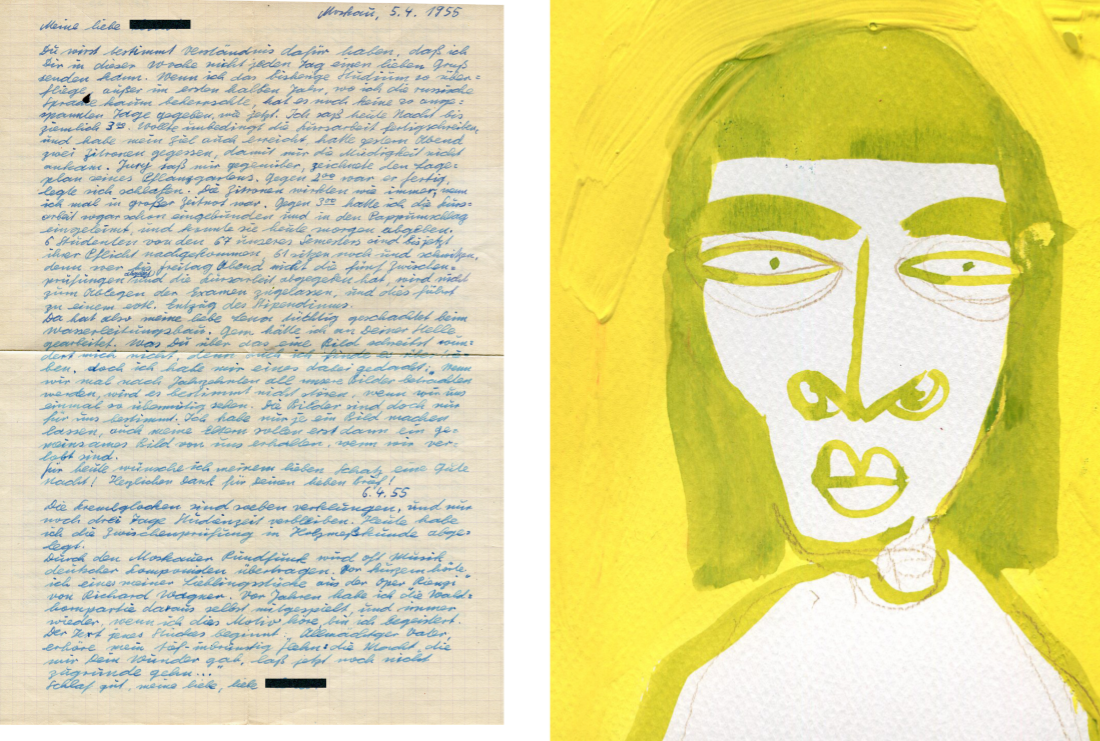 Moskau, 5.4.1955
Meine liebe
Du wirst bestimmt Verständnis dafür haben, daß ich
Dir in dieser Woche nicht jeden Tag einen lieben Gruß
senden kann. Wenn ich das bisherige Studium so über=
fliege, außer im ersten halben Jahr, wo ich die russische
Sprache kaum beherrschte, hat es noch keine so ange=
spannten Tage gegeben, wie jetzt. Ich saß heute Nacht bis
ziemlich 3⁰⁰. Wollte unbedingt die Kursarbeit fertigschreiben
und habe mein Ziel auch erreicht. Hatte gestern Abend
zwei Zitronen gegessen, damit mir die Müdigkeit nicht
ankam. Jurij saß mir gegenüber, zeichnete den Lage=
plan seines Pflanzgartens. Gegen 2⁰⁰ war er fertig,
legte sich schlafen. Die Zitronen wirkten wie immer, wenn
ich mal in großer Zeitnot war. Gegen 3⁰⁰ hatte ich die Kurs=
arbeit sogar schon eingebunden und in den Pappumschlag
eingeleimt, und konnte sie heute morgen abgeben.
6 Studenten von den 67 unseres Semesters sind bis jetzt
ihrer Pflicht nachgekommen. 61 sitzen noch und schwitzen,
denn wer bis Freitag Abend nicht die fünf Zwischen=
prüfungen und die Kursarbeit abgegeben hat, wird nicht
zum Ablegen der Examen zugelassen, und dies führt
zu einem evtl. Entzug des Stipendiums.
Da hat also meine liebe Lenor tüchtig geschachtet beim
Wasserleitungsbau. Gern hätte ich an Deiner Stelle
gearbeitet. Was Du über das eine Bild schreibst wun=
dert mich nicht, denn auch ich finde es
ben, doch ich habe mir eines dabei gedacht: Wenn
wir mal nach Jahrzehnten all unsere Bilder betrachten
werden, wird es bestimmt nicht stören, wenn wir uns
einmal so übermütig sehen. Die Bilder sind doch nur
für uns bestimmt. Ich habe nur je ein Bild machen
lassen, auch meine Eltern sollen erst dann ein ge=
meinsames Bild von uns erhalten, wenn wir ver=
lobt sind.
Für heute wünsche ich meinem lieben Schatz eine gute
Nacht! Herzlichen Dank für Deinen lieben Brief!
6.4.55
Die Kremlglocken sind soeben verklungen, und nur
noch drei Tage Studienzeit verbleiben. Heute habe
ich die Zwischenprüfung in Holzmeßkunde abge=
legt.
Durch den Moskauer Rundfunk wird oft Musik
deutscher Komponisten übertragen. Vor kurzem hörte
ich eines meiner Lieblingsstücke aus der Oper "Rienzi"
von Richard Wagner. Vor Jahren habe ich die Wald=
hornpartie daraus selbst mitgespielt, und immer
wieder, wenn ich dies Motiv höre, bin ich begeistert.
Der Text jenes Stückes beginnt: "Allmächtger Vater,
erhöre mein tief-inbrünstig Flehn: die Macht, die
mir Dein Wunder gab, laß jetzt noch nicht
zugrunde gehn..."
Schlaf gut, meine liebe, liebe